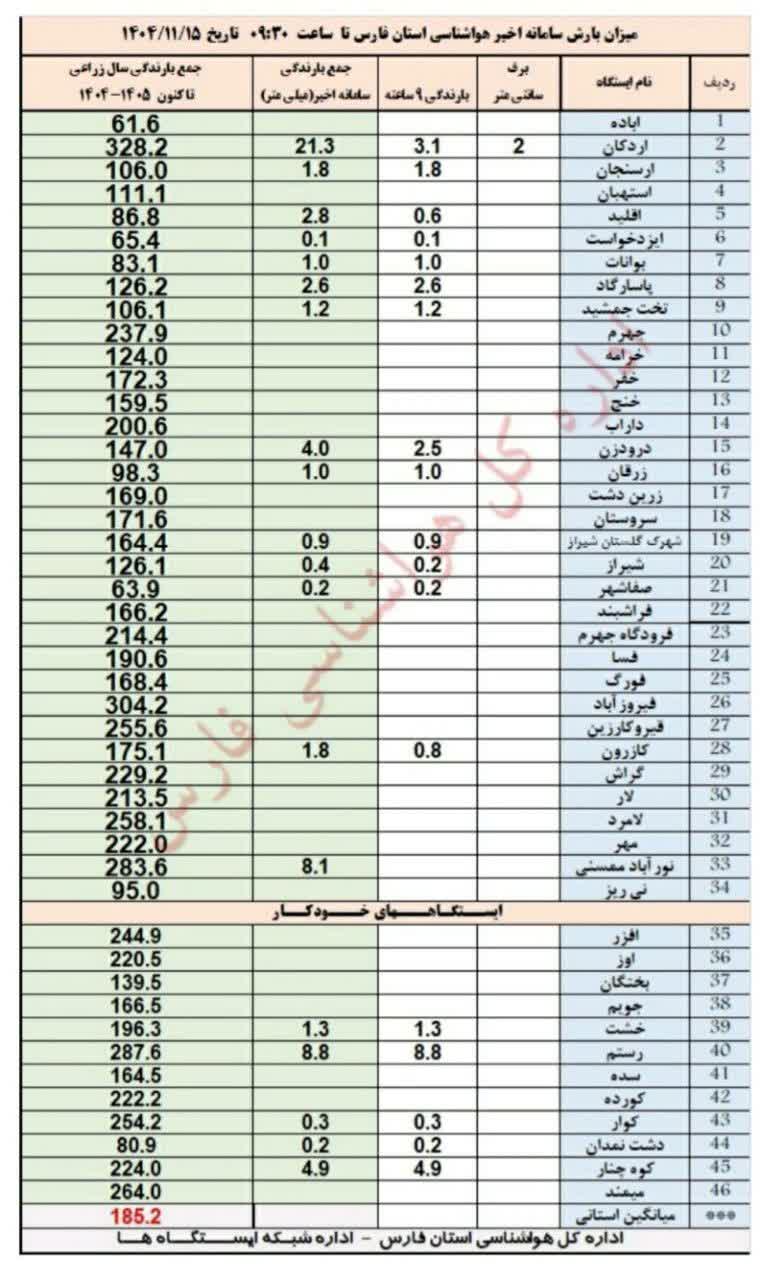 میزان بارش سامانه اخیر هواشناسی استان فارس تا ساعت ۰۹:۳۰ تاریخ ۱۴۰۴/۱۱/۱۵
ردیف نام ایستگاه برف سانتی متر بارندگی ۹ ساعته جمع بارندگی سامانه اخیر(میلی متر) جمع بارندگی سال زراعی تاکنون ۱۴۰۵-۱۴۰۴
1 اباده 61.6
2 اردکان 2 3.1 21.3 328.2
3 ارسنجان 1.8 1.8 106.0
4 استهبان 111.1
5 اقلید 0.6 2.8 86.8
6 ایزدخواست 0.1 0.1 65.4
7 بوانات 1.0 1.0 83.1
8 پاسارگاد 2.6 2.6 126.2
9 تخت جمشید 1.2 1.2 106.1
10 جهرم 237.9
11 خرامه 124.0
12 خفر 172.3
13 خنج 159.5
14 داراب 200.6
15 درودزن 2.5 4.0 147.0
16 زرقان 1.0 1.0 98.3
17 زرین دشت 169.0
18 سروستان 171.6
19 شهرک گلستان شیراز 0.9 0.9 164.4
20 شیراز 0.2 0.4 126.1
21 صفاشهر 0.2 0.2 63.9
22 فراشبند 166.2
23 فرودگاه جهرم 214.4
24 فسا 190.6
25 فورگ 168.4
26 فیروزآباد 304.2
27 قیروکارزین 255.6
28 کازرون 0.8 1.8 175.1
29 گراش 229.2
30 لار 213.5
31 لامرد 258.1
32 مهر 222.0
33 نورآباد ممسنی 8.1 283.6
34 نی ریز 95.0
ایستگاههای خودکار
35 افزر 244.9
36 اوز 220.5
37 بختگان 139.5
38 جویم 166.5
39 خشت 1.3 1.3 196.3
40 رستم 8.8 8.8 287.6
41 سده 164.5
42 کورده 222.2
43 کوار 0.3 0.3 254.2
44 دشت نمدان 0.2 0.2 80.9
45 کوه چنار 4.9 4.9 224.0
46 میمند 264.0
*** میانگین استانی 185.2
اداره کل هواشناسی استان فارس - اداره شبکه ایستگاه ها
اداره کل هواشناسی فارس